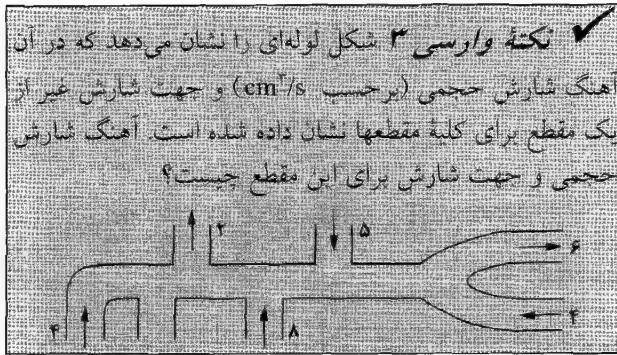 ✓ نکتهٔ وارسی ۳ شکل لوله‌ای را نشان می‌دهد که در آن
آهنگ شارش حجمی (برحسب cm³/s) و جهت شارش غیر از
یک مقطع برای کلیهٔ مقطعها نشان داده شده است. آهنگ شارش
حجمی و جهت شارش برای این مقطع چیست؟
۲ ۵
۶
۴ ۸ ۴